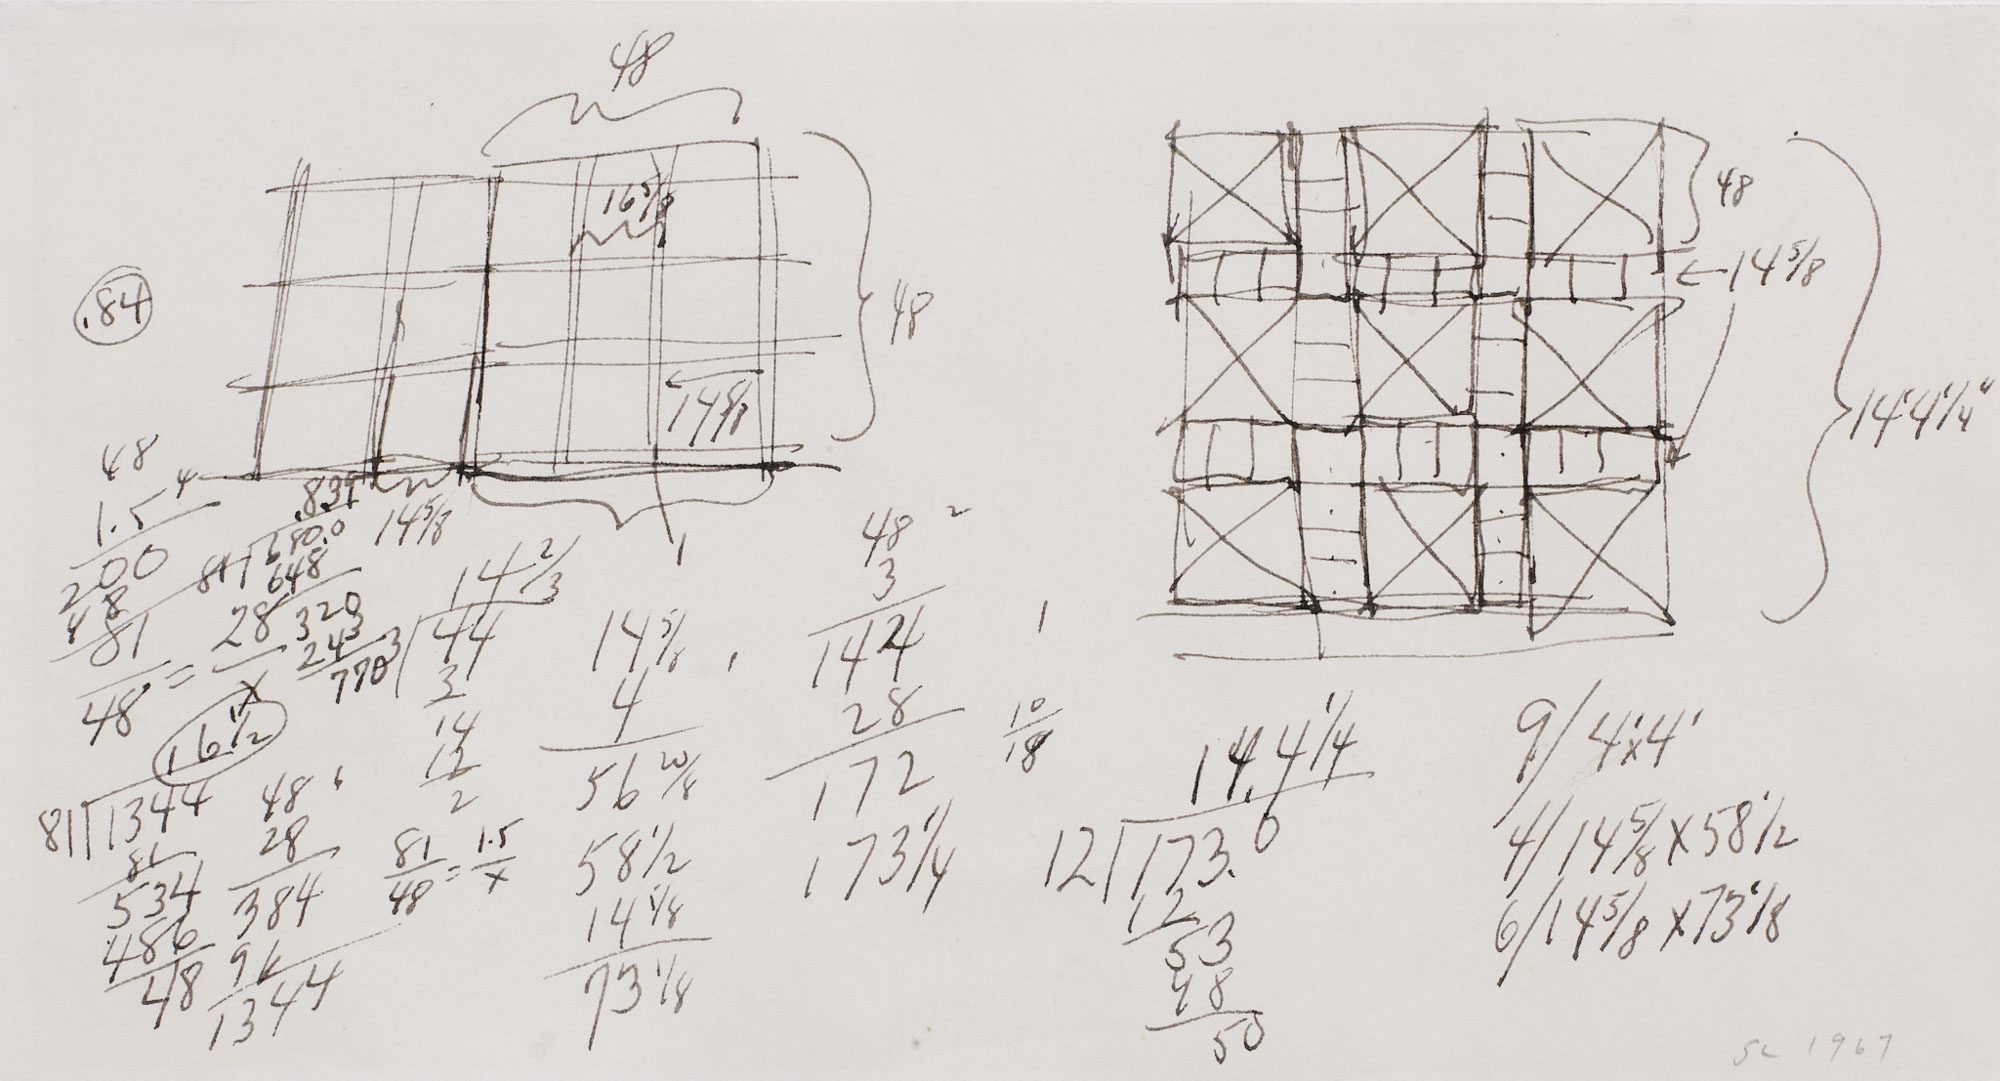 48
16 5/8
48
.84
14 5/8
48
14 5/8
14'4 1/4"
48
1.5
200
48
81
81/48 = 28/x
4
.839
81)680.0
648
320
243
770
14 5/8
14 2/3
3)44
3
14
12
2
16 1/2
81)1344
81
534
486
48
48
28
384
96
1344
81/48 = 1.5/x
1
14 5/8
4
56 20/8
58 1/2
14 5/8
73 1/8
48
3
144
28
172
173 1/4
1
10/18
14.4 1/4
12)173.0
12
53
48
50
9/ 4'x4'
4/ 14 5/8 x 58 1/2
6/ 14 5/8 x 73 1/8
SL 1967